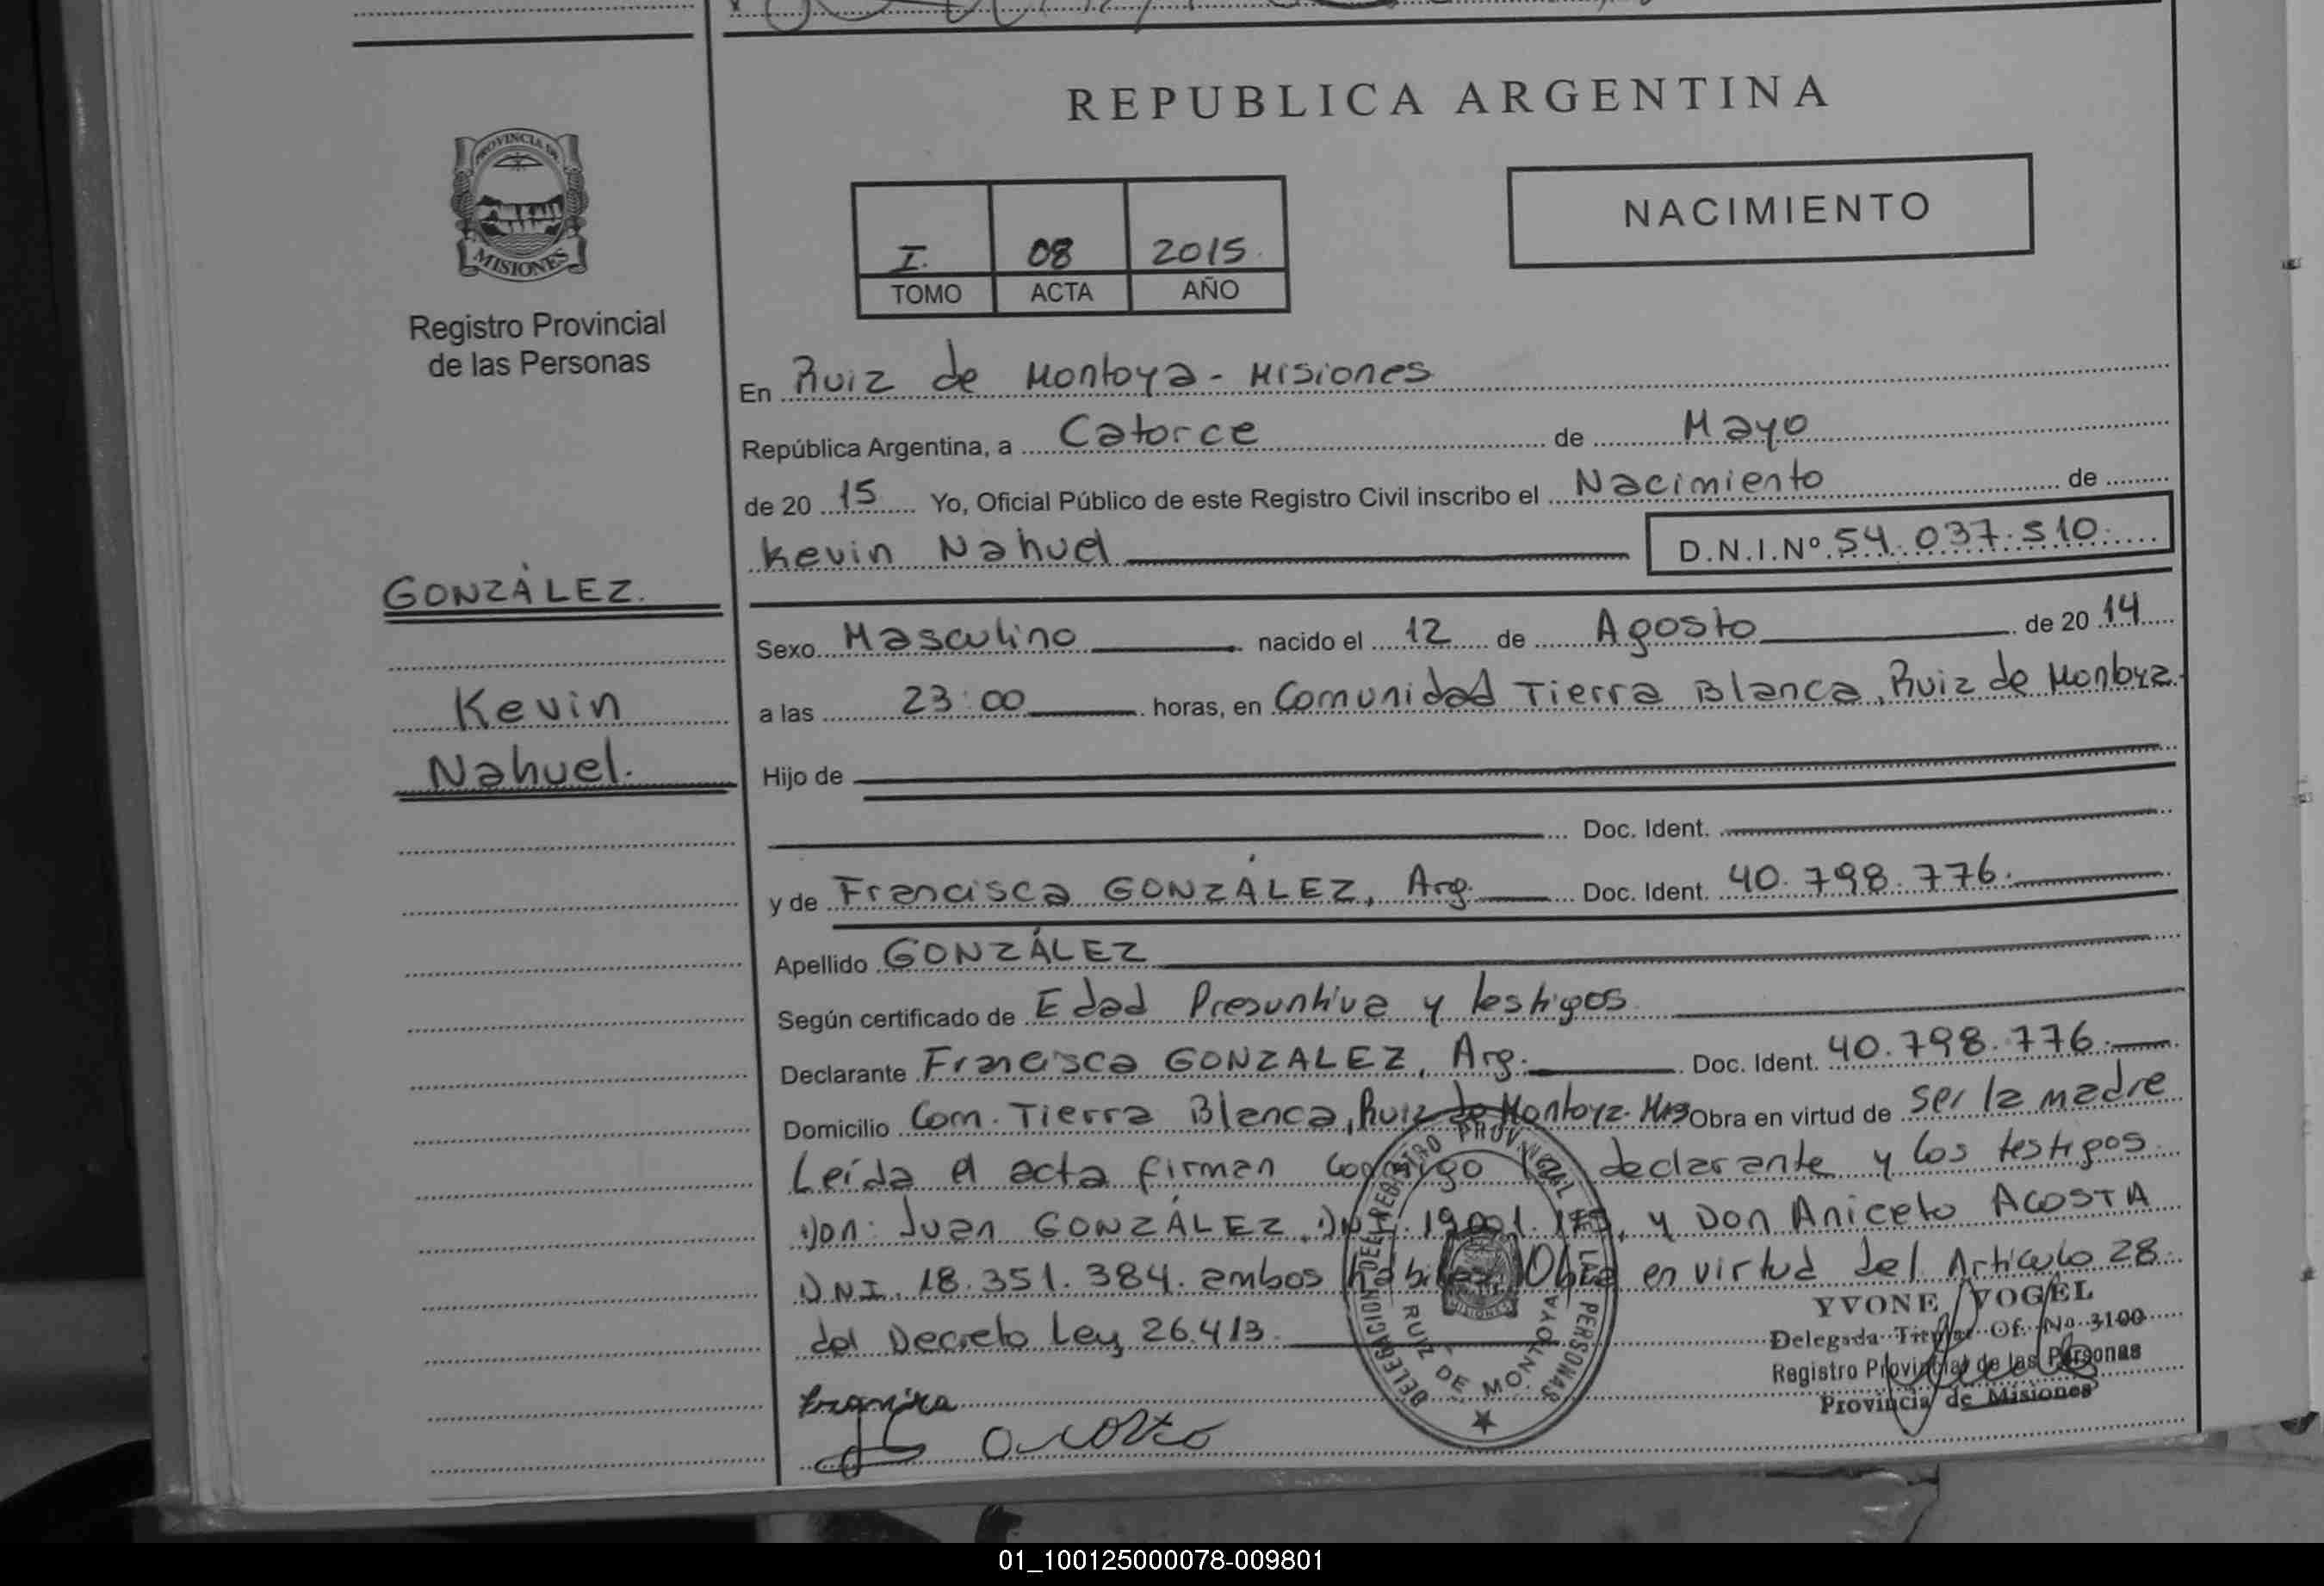 REPUBLICA ARGENTINA
PROVINCIA DE
MISIONES
Registro Provincial
de las Personas
NACIMIENTO
I. 08 2015.
TOMO ACTA AÑO
En Ruiz de Montoya - Misiones
República Argentina, a Catorce de Mayo
de 20 15 Yo, Oficial Público de este Registro Civil inscribo el Nacimiento de
Kevin Nahuel D.N.I.Nº 54.037.510.
GONZÁLEZ.
Kevin
Nahuel.
Sexo Masculino nacido el 12 de Agosto de 20 14
a las 23:00 horas, en Comunidad Tierra Blanca, Ruiz de Montoya.
Hijo de
Doc. Ident.
y de Francisca GONZÁLEZ, Arg. Doc. Ident. 40.798.776.
Apellido GONZÁLEZ
Según certificado de Edad Presuntiva y testigos
Declarante Francisca GONZALEZ, Arg. Doc. Ident. 40.798.776.
Domicilio Com. Tierra Blanca, Ruiz de Montoya. Mns Obra en virtud de ser la madre
Leída el acta firman conmigo la declarante y los testigos
Don: Juan GONZÁLEZ, DNI. 19.001. y Don Aniceto ACOSTA
DNI. 18.351.384. ambos habiles. Obra en virtud del Artículo 28
del Decreto Ley 26.413.
DELEGACION DEL REGISTRO PROVINCIAL DE LAS PERSONAS
RUIZ DE MONTOYA
YVONE VOGEL
Delegada Titular Of. No 3100
Registro Provincial de las Personas
Provincia de Misiones
acosta
01_100125000078-009801